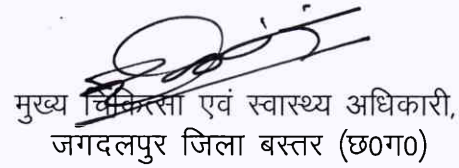 मुख्य चिकित्सा एवं स्वास्थ्य अधिकारी,
जगदलपुर जिला बस्तर (छ0ग0)